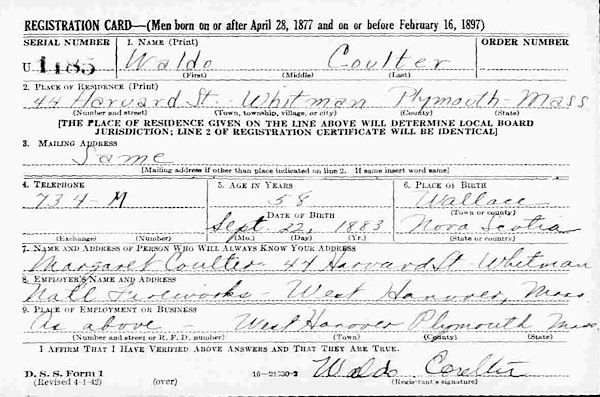 REGISTRATION CARD—(Men born on or after April 28, 1877 and on or before February 16, 1897)
SERIAL NUMBER 1. NAME (Print) ORDER NUMBER
U 1185 Waldo Coulter
(First) (Middle) (Last)
2. PLACE OF RESIDENCE (Print)
44 Harvard St. Whitman Plymouth Mass
(Number and street) (Town, township, village, or city) (County) (State)
[THE PLACE OF RESIDENCE GIVEN ON THE LINE ABOVE WILL DETERMINE LOCAL BOARD
JURISDICTION; LINE 2 OF REGISTRATION CERTIFICATE WILL BE IDENTICAL]
3. MAILING ADDRESS
Same
[Mailing address if other than place indicated on line 2. If same insert word same]
4. TELEPHONE 5. AGE IN YEARS 6. PLACE OF BIRTH
734-M 58 Wallace
DATE OF BIRTH (Town or county)
Sept. 22, 1883 Nova Scotia
(Exchange) (Number) (Mo.) (Day) (Yr.) (State or country)
7. NAME AND ADDRESS OF PERSON WHO WILL ALWAYS KNOW YOUR ADDRESS
Margaret Coulter - 44 Harvard St - Whitman
8. EMPLOYER'S NAME AND ADDRESS
Natl Fireworks - West Hanover, Mass
9. PLACE OF EMPLOYMENT OR BUSINESS
As above - West Hanover Plymouth Mass.
(Number and street or R. F. D. number) (Town) (County) (State)
I AFFIRM THAT I HAVE VERIFIED ABOVE ANSWERS AND THAT THEY ARE TRUE.
D. S. S. Form 1 Waldo Coulter
(Revised 4-1-42) (over) (Registrant's signature)